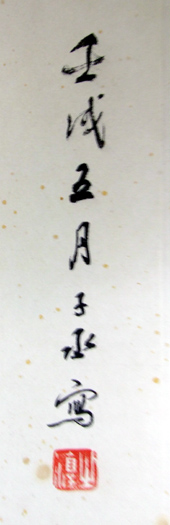 壬戌五月子丞寫